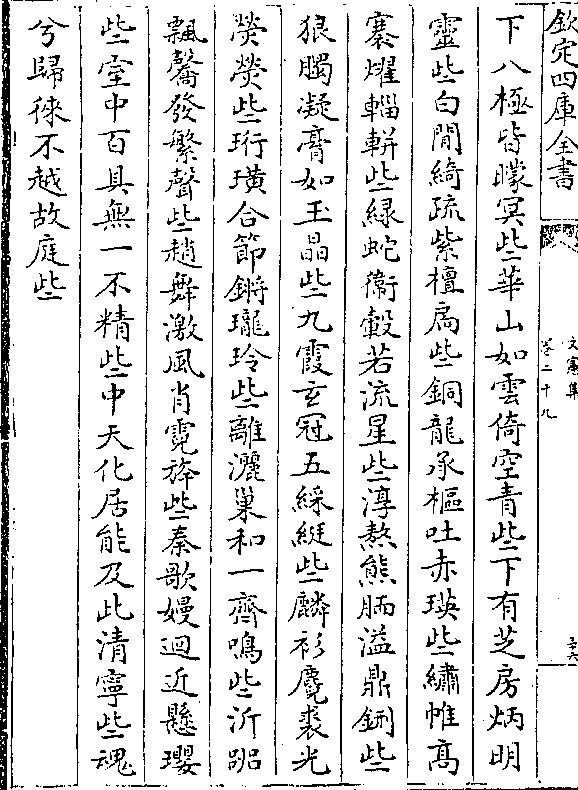 欽定四庫全書
文憲集
卷二十九
下八極皆曚冥些華山如雲倚空青些下有芝房炳明
靈些白閒綺疏紫檀扃些銅龍承樞吐赤瑛些繡帷高
褰燿輜軿些緑蛇衞轂若流星些淳熬熊腼溢鼎鉶些
狼臅凝膏如玉晶些九霞玄冠五綵綎些麟衫麑裘光
熒熒些珩璜合節鏘瓏玲些離灑巢和一齊鳴些沂
飄馨發繁聲些趙舞激風肖霓旍些秦歌嫚迴近懸瓔
些室中百具無一不精些中天化居能及此清寧些魂
兮歸徠不越故庭些